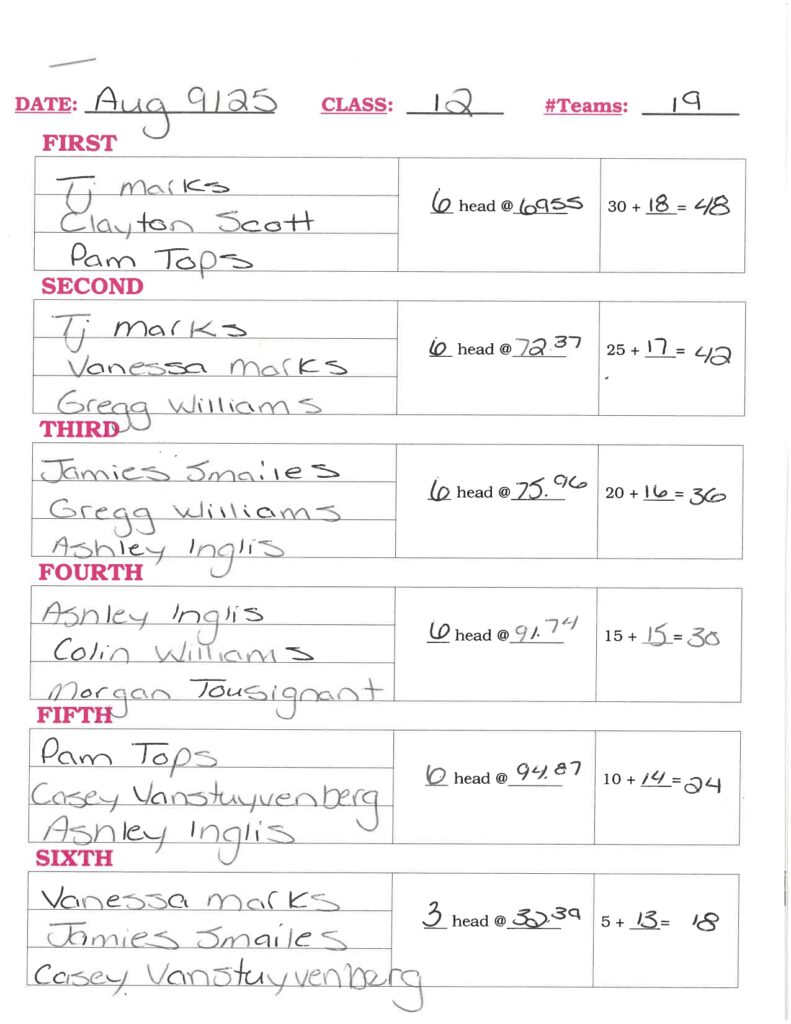 DATE: Aug 9/25 CLASS: 12 #Teams: 19
FIRST
Tj Marks
Clayton Scott
Pam Tops
6 head @ 6955
30 + 18 = 48
SECOND
Tj Marks
Vanessa Marks
Gregg Williams
6 head @ 72.37
25 + 17 = 42
THIRD
Jamies Smailes
Gregg Williams
Ashley Inglis
6 head @ 75.96
20 + 16 = 36
FOURTH
Ashley Inglis
Colin Williams
Morgan Tousignant
6 head @ 91.74
15 + 15 = 30
FIFTH
Pam Tops
Casey Vanstuyvenberg
Ashley Inglis
6 head @ 94.87
10 + 14 = 24
SIXTH
Vanessa Marks
Jamies Smailes
Casey Vanstuyvenberg
3 head @ 32.39
5 + 13 = 18